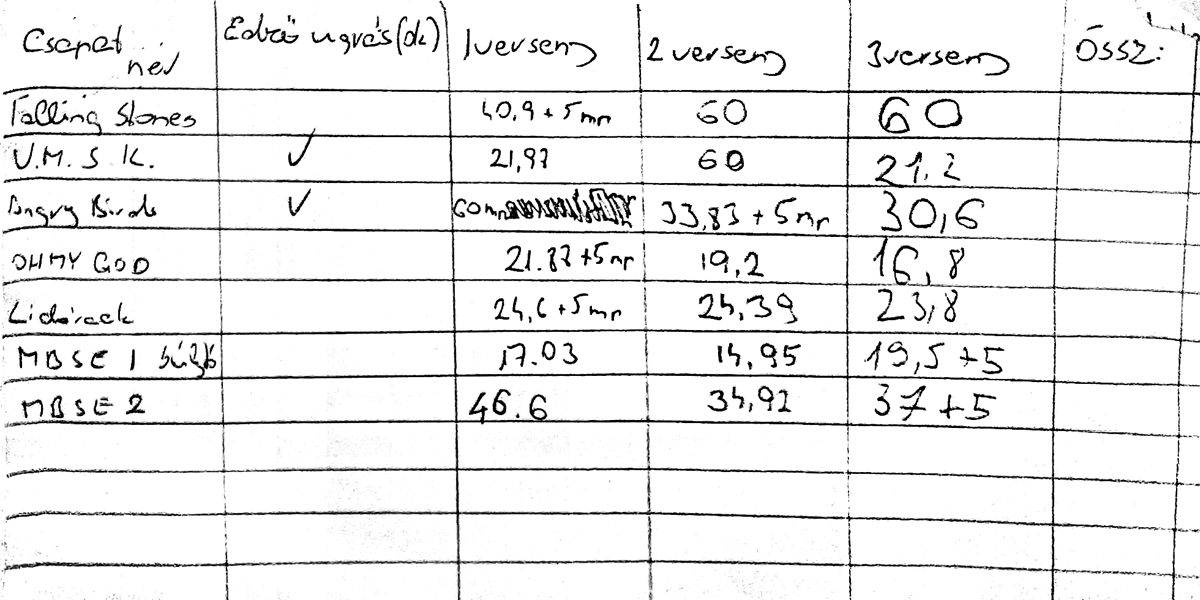 Csapat név Edző ugrás(ok) 1 verseny 2 verseny 3 verseny Össz:
Falling Stones 40,9 + 5 mp 60 60
V.M.S.K. ✓ 21,97 60 21.2
Angry Birds ✓ 60 mp 33,83 + 5 mp 30,6
OH MY GOD 21.87 + 5 mp 19,2 16,8
24,6 + 5 mp 24,39 23,8
MBSE 1 17.03 14,95 19,5 + 5
MBSE 2 46.6 34,92 37 + 5